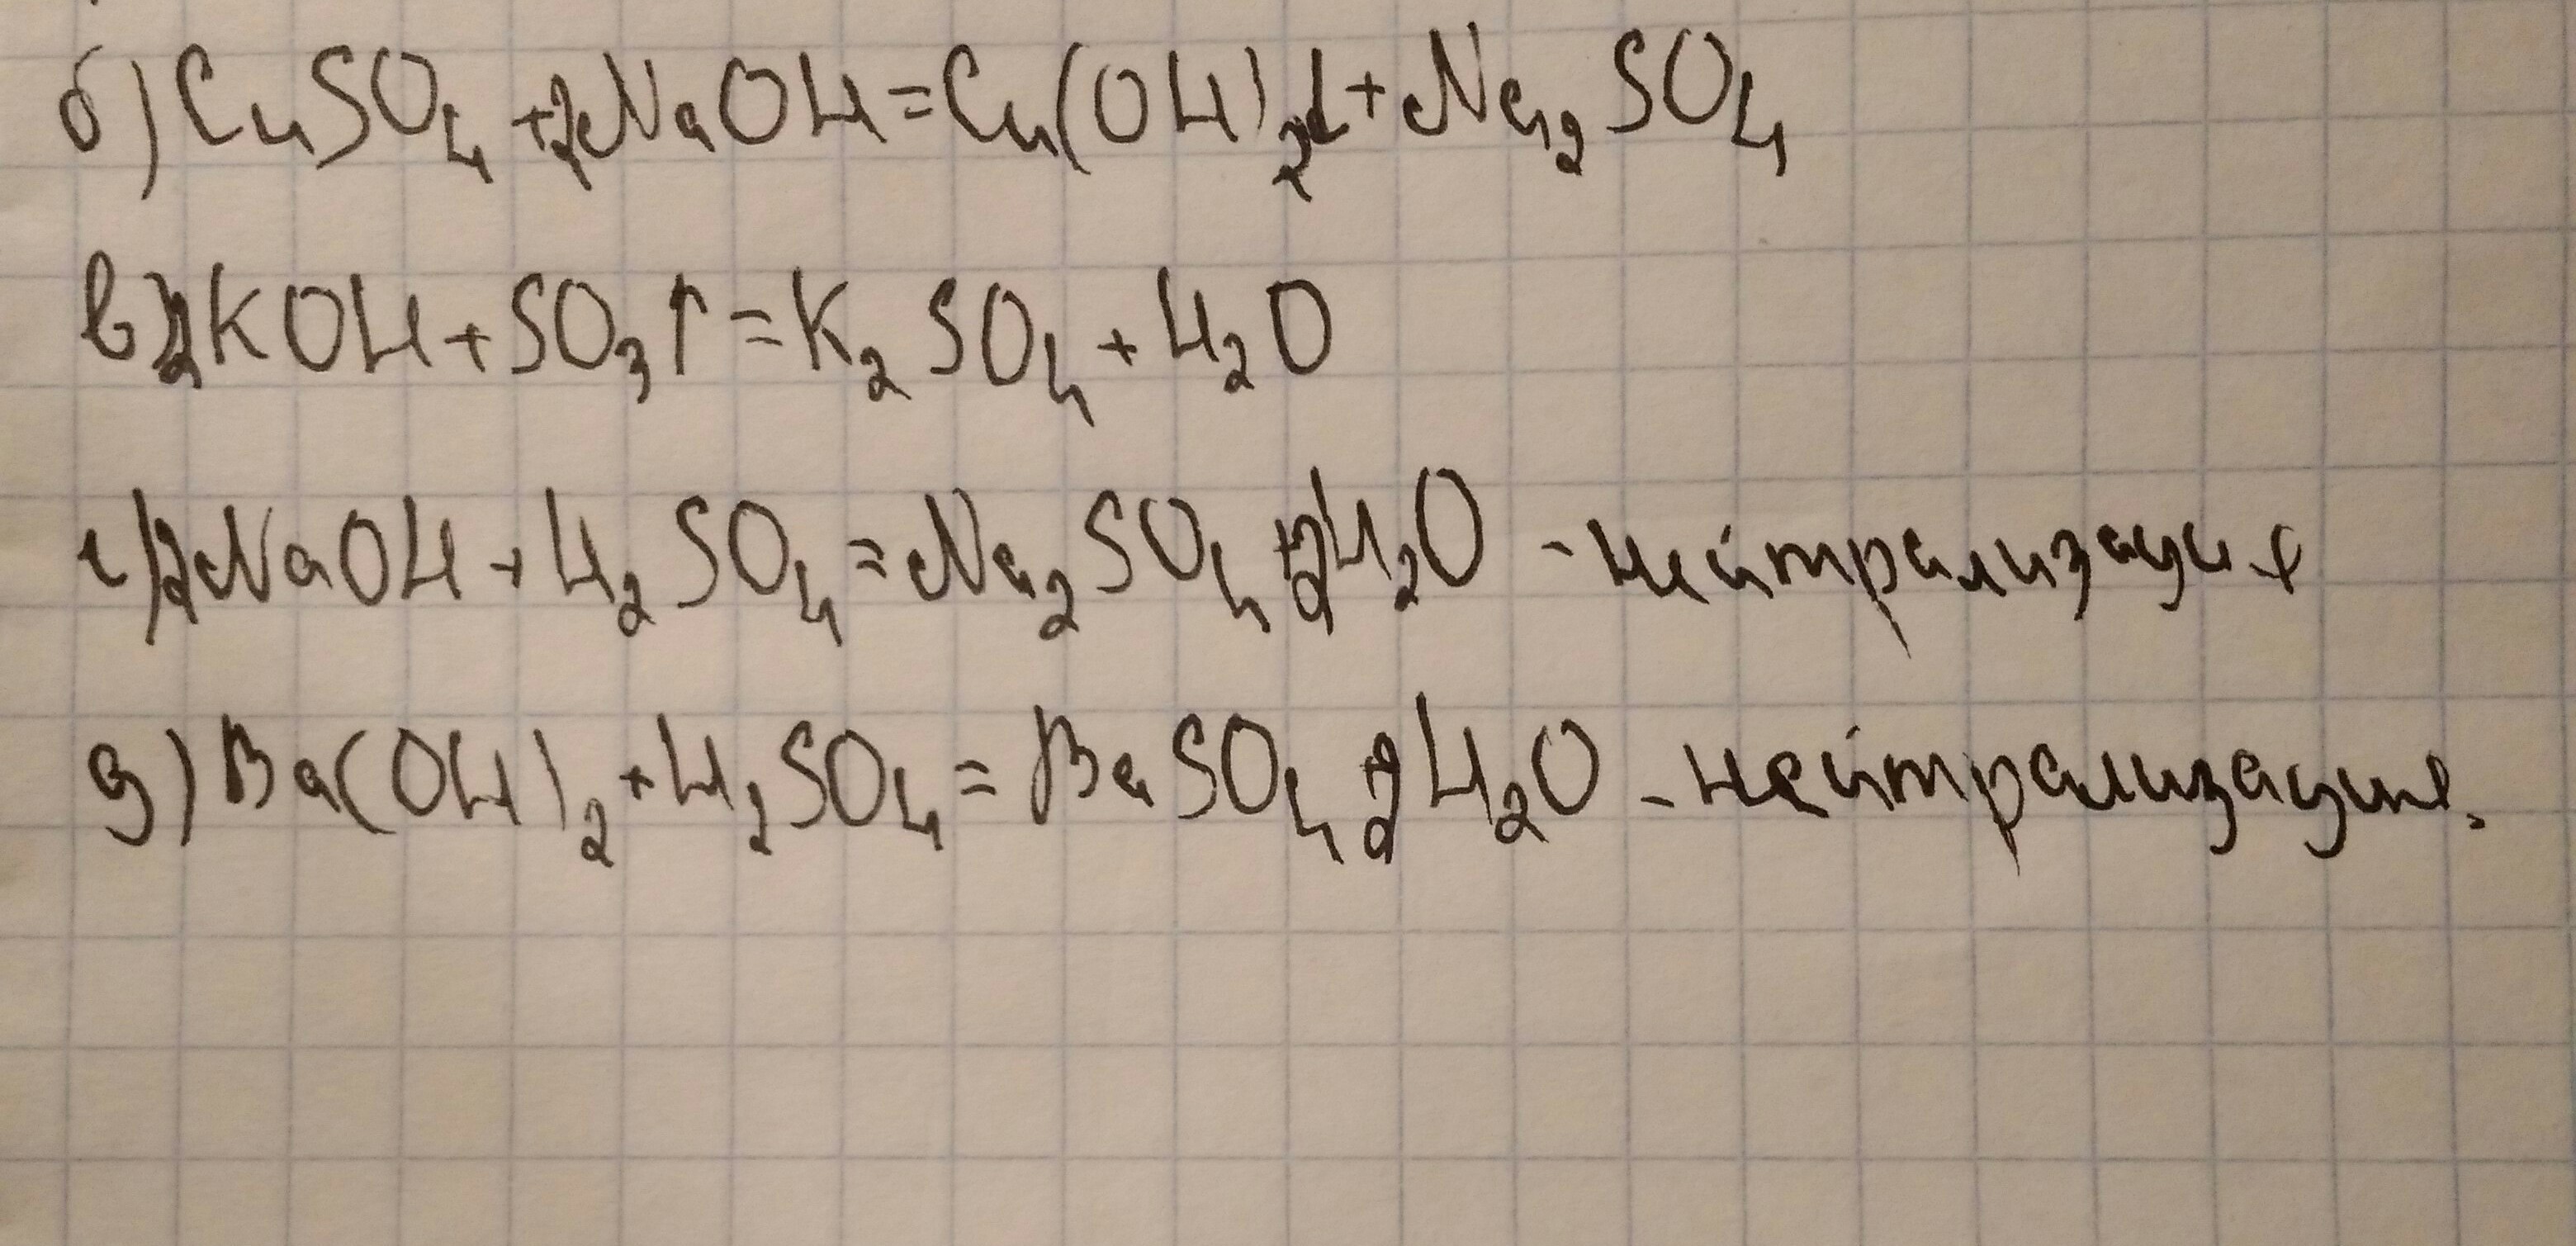 б) CuSO₄ + 2NaOH = Cu(OH)₂↓ + Na₂SO₄
в) 2KOH + SO₃↑ = K₂SO₄ + H₂O
г) 2NaOH + H₂SO₄ = Na₂SO₄ + 2H₂O - нейтрализация
д) Ba(OH)₂ + H₂SO₄ = BaSO₄ + 2H₂O - нейтрализация.